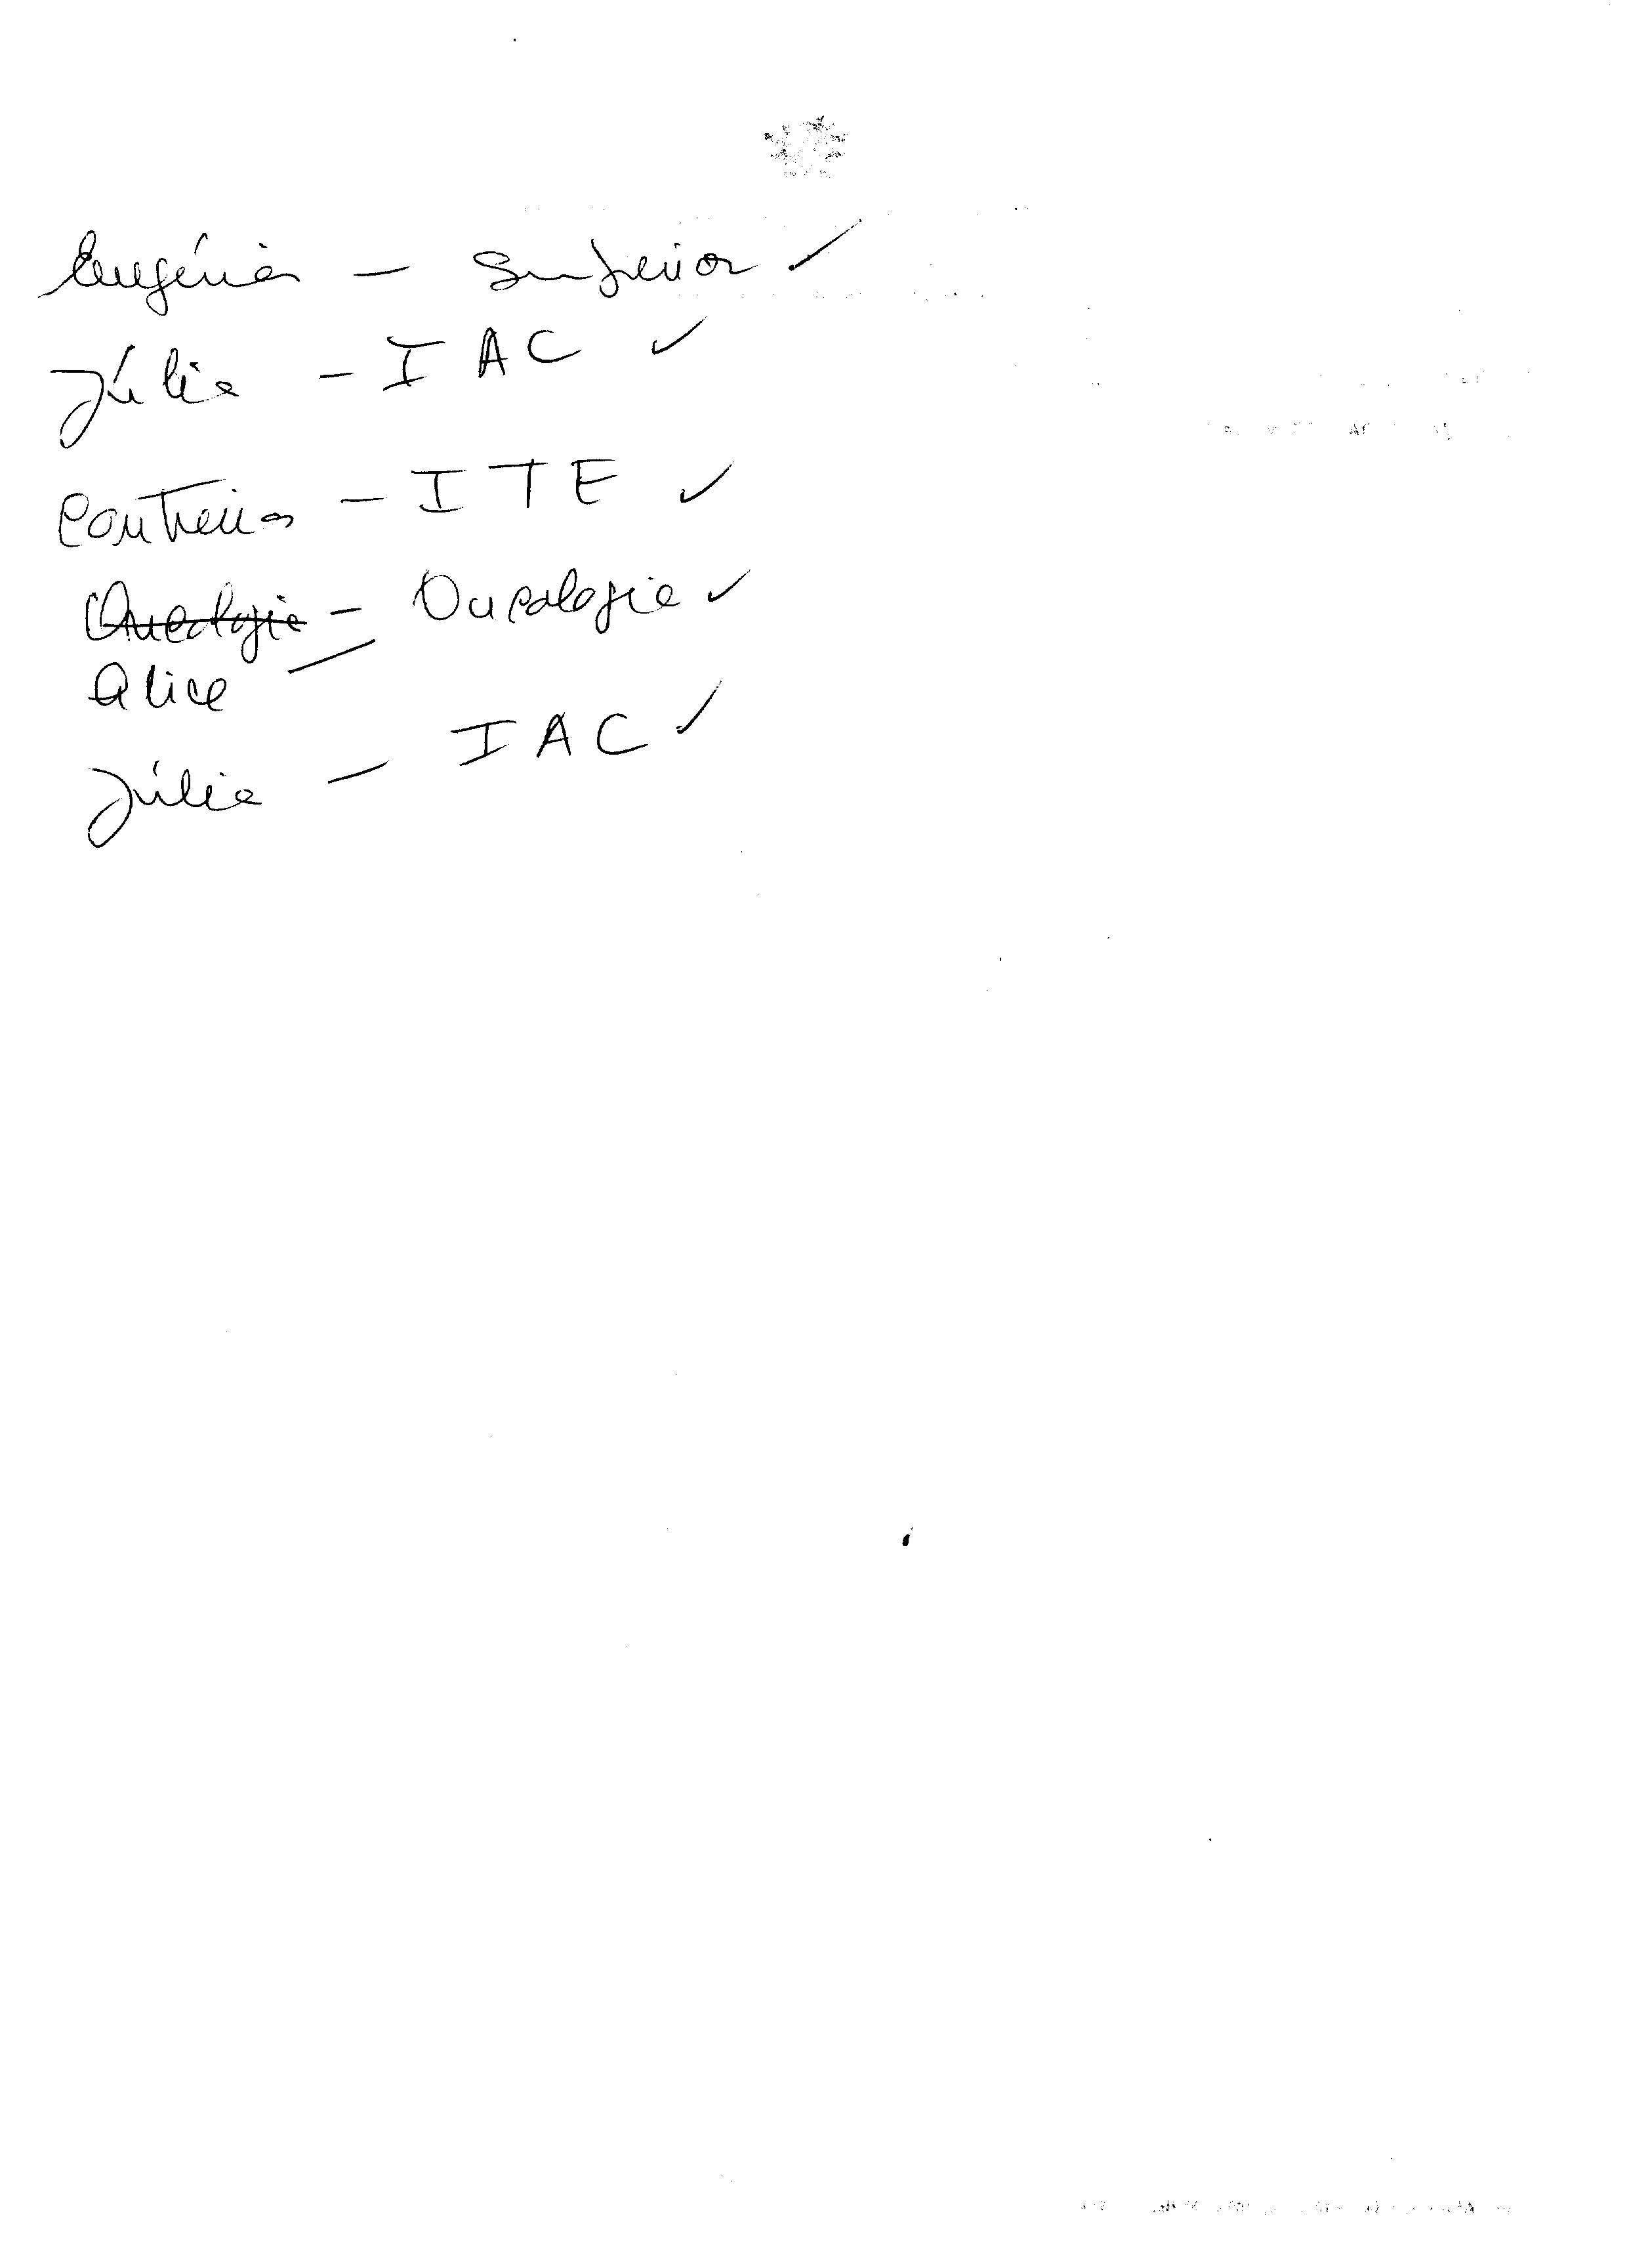 Eugénia - Superior ✓
Júlia - IAC ✓
Contreiras - ITE ✓
Oncologia - Oncologia ✓
Alice —
Júlia - IAC ✓